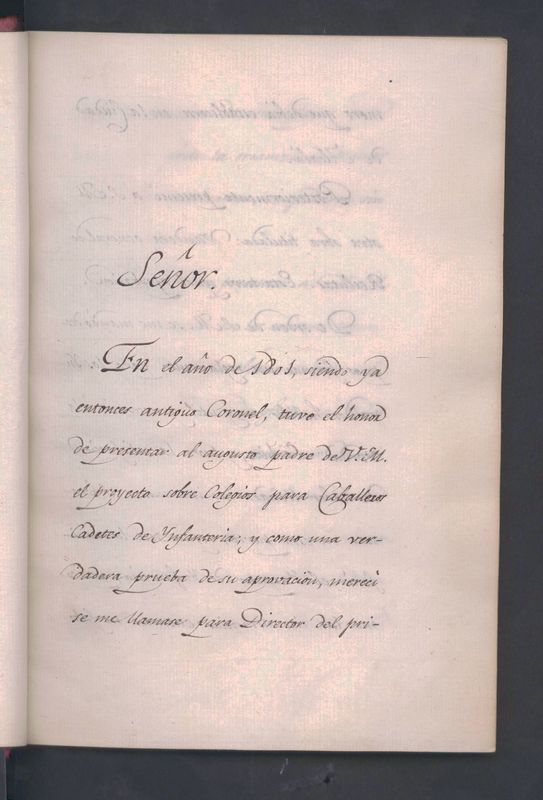 Señor.
En el año de 1801, siendo ya
entonces antiguo Coronel, tuve el honor
de presentar al augusto padre de V. M.
el proyecto sobre Colegios para Caballeros
Cadetes de Ynfanteria; y como una ver-
dadera prueba de su aprovacion, mereci
se me llamase para Director del pri-